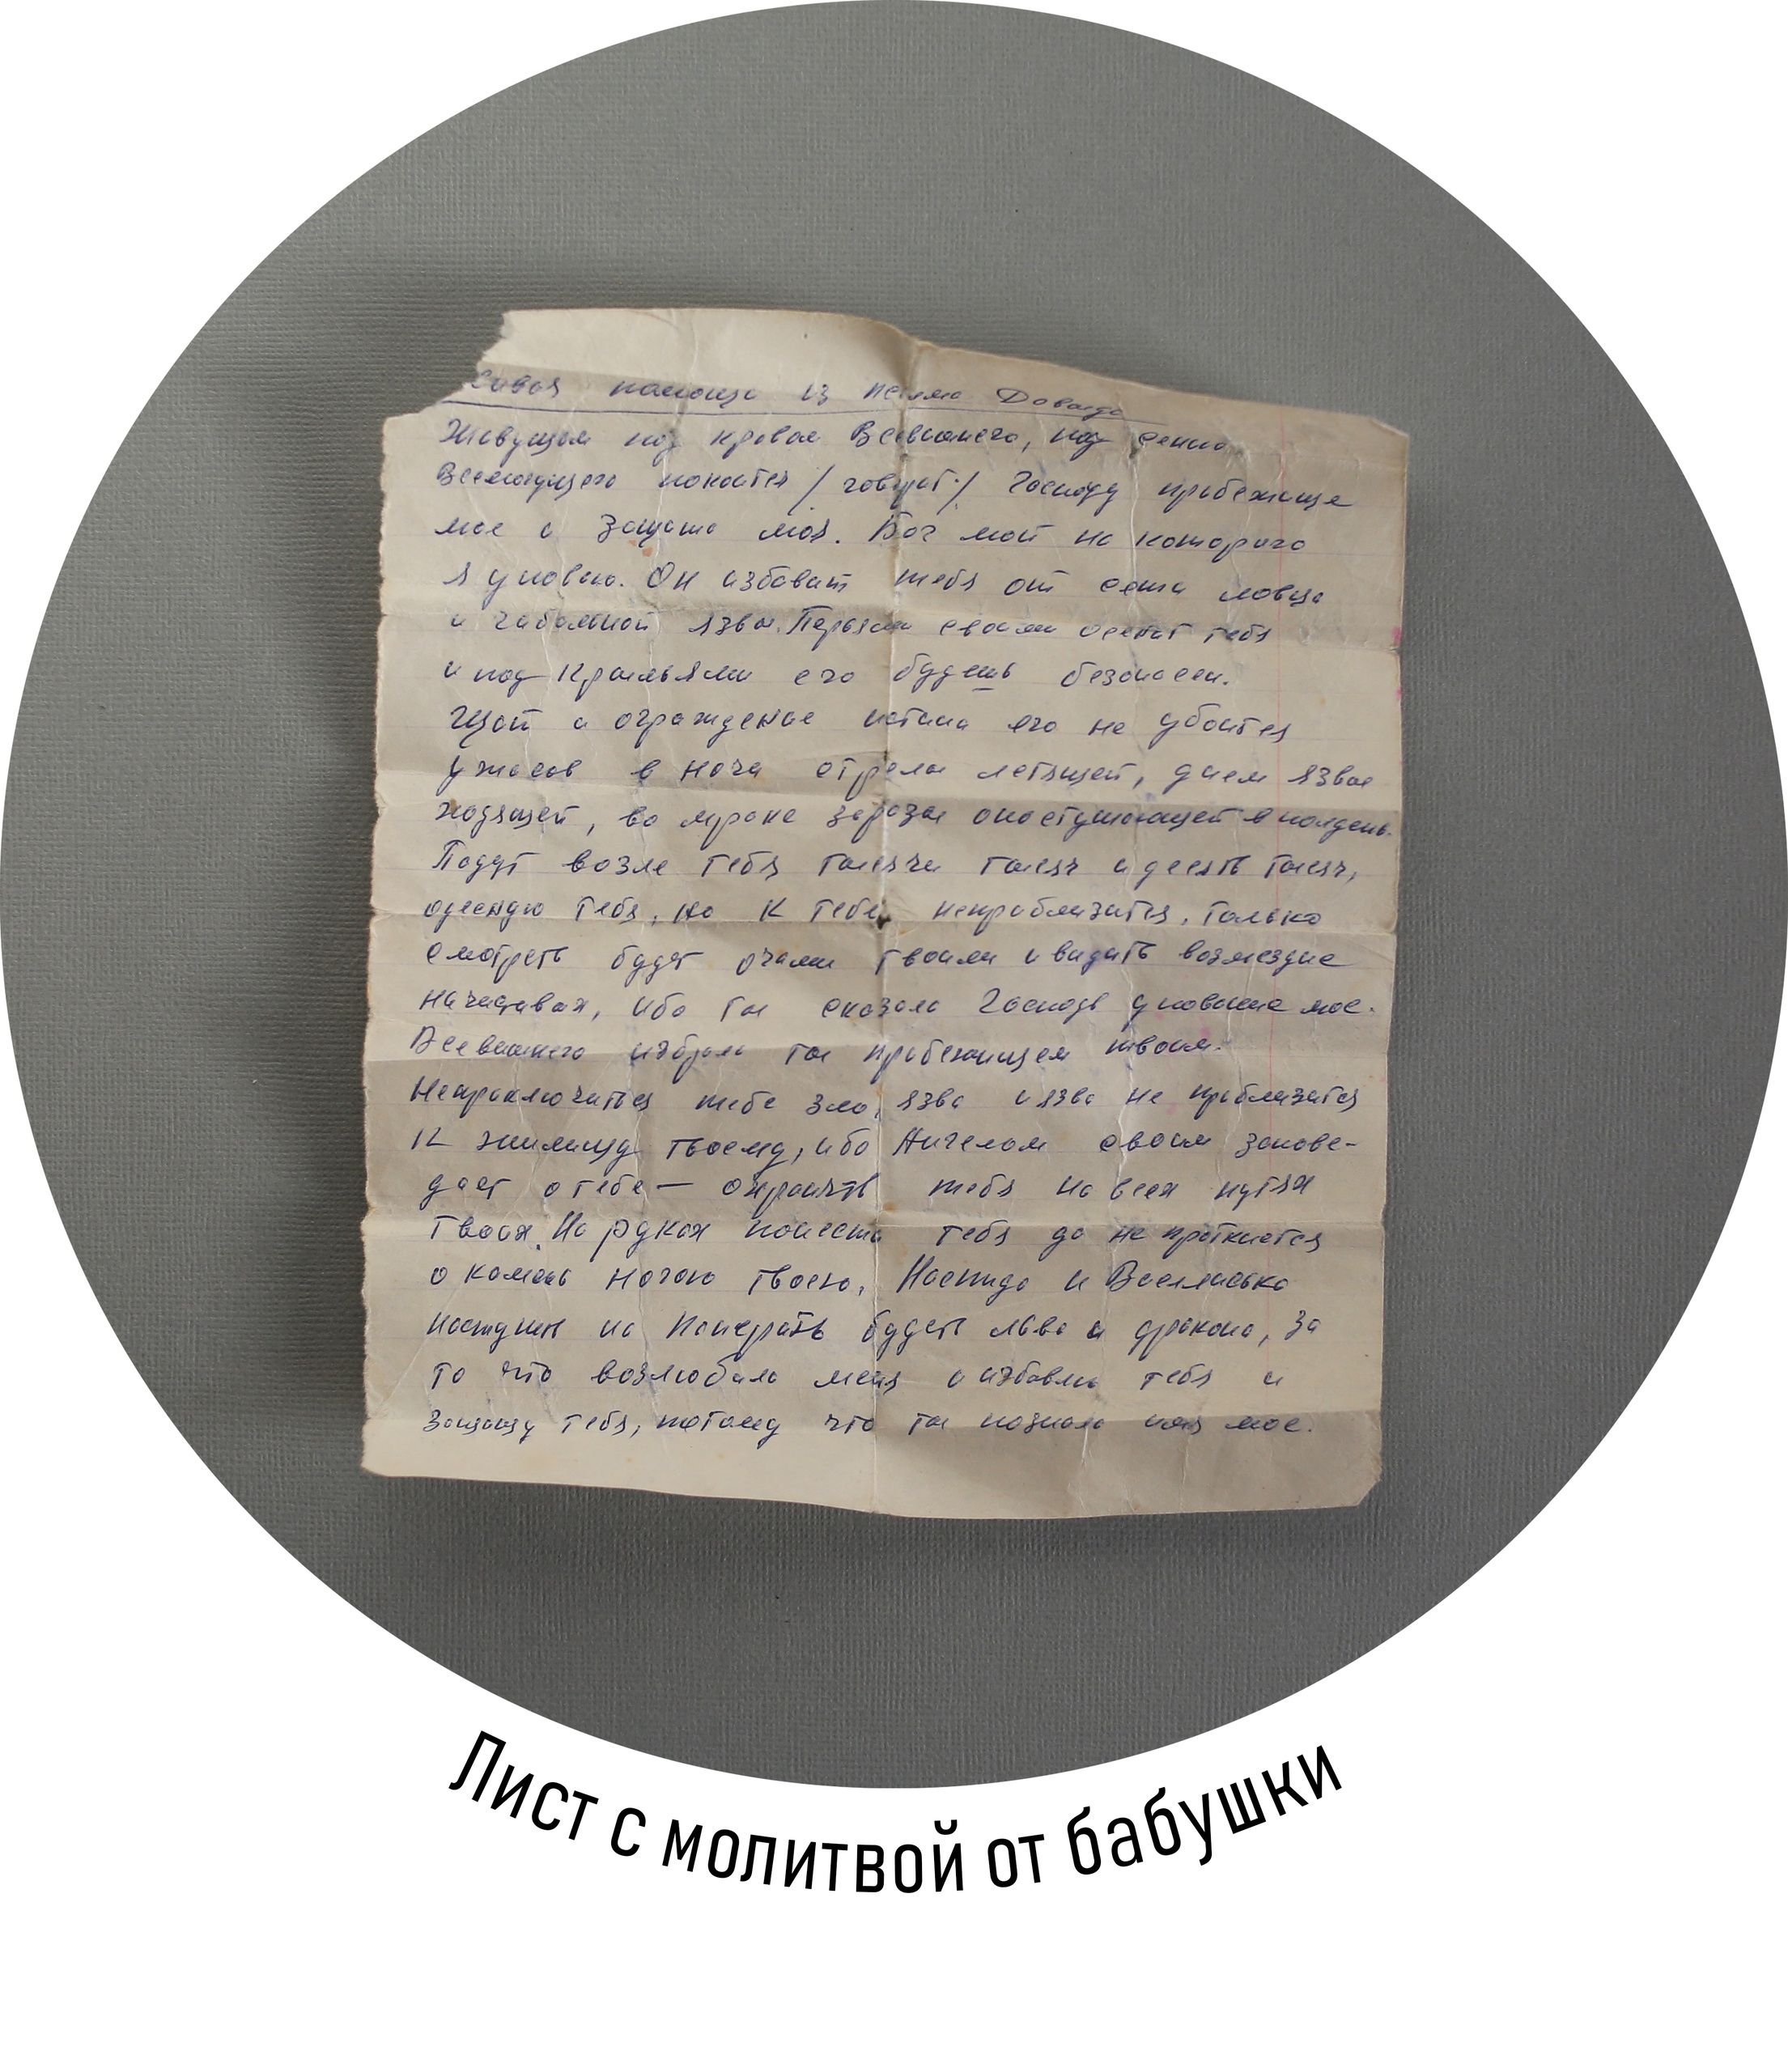 Живая помощь из псалма Давида
Живущий под кровом Всевышнего, под сенью
Всемогущего покоится / говорит / Господу прибежище
мое и защита моя. Бог мой на которого
я уповаю. Он избавит тебя от сети ловца
и гибельной язвы. Перьями своими осенит тебя
и под крыльями его будешь безопасен.
Щит и ограждение истина его не убоится
ужасов в ночи стрелы летящей, днем язвы
ходящей, во мраке заразы опостушающей в полдень.
Падут возле тебя тысячи тысяч и десять тысяч,
одесную тебя, но к тебе неприблизится, только
смотреть будут очами твоими и видить возмездие
начистивых, ибо ты сказала Господь упование мое.
Всевышнего избрала ты прибежищем твоим.
Неприключиться тебе зло, язва и язва не приблизится
К жилищу твоему, ибо Ангелам своим запове-
дает о тебе — охранять тебя на всех путях
твоих. На руках понесут тебя да не преткнется
о камень ногою твоею, На аспида и Василиска
наступит и попирать будет льва и дракона, За
то что возлюбила меня и избавлю тебя и
защищу тебя, потому что ты познала имя мое.
Лист с молитвой от бабушки